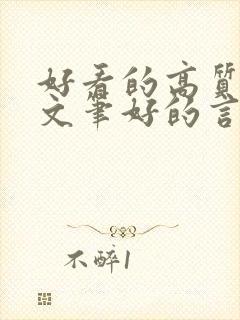 好看的高质
文筆好的言
不醉1